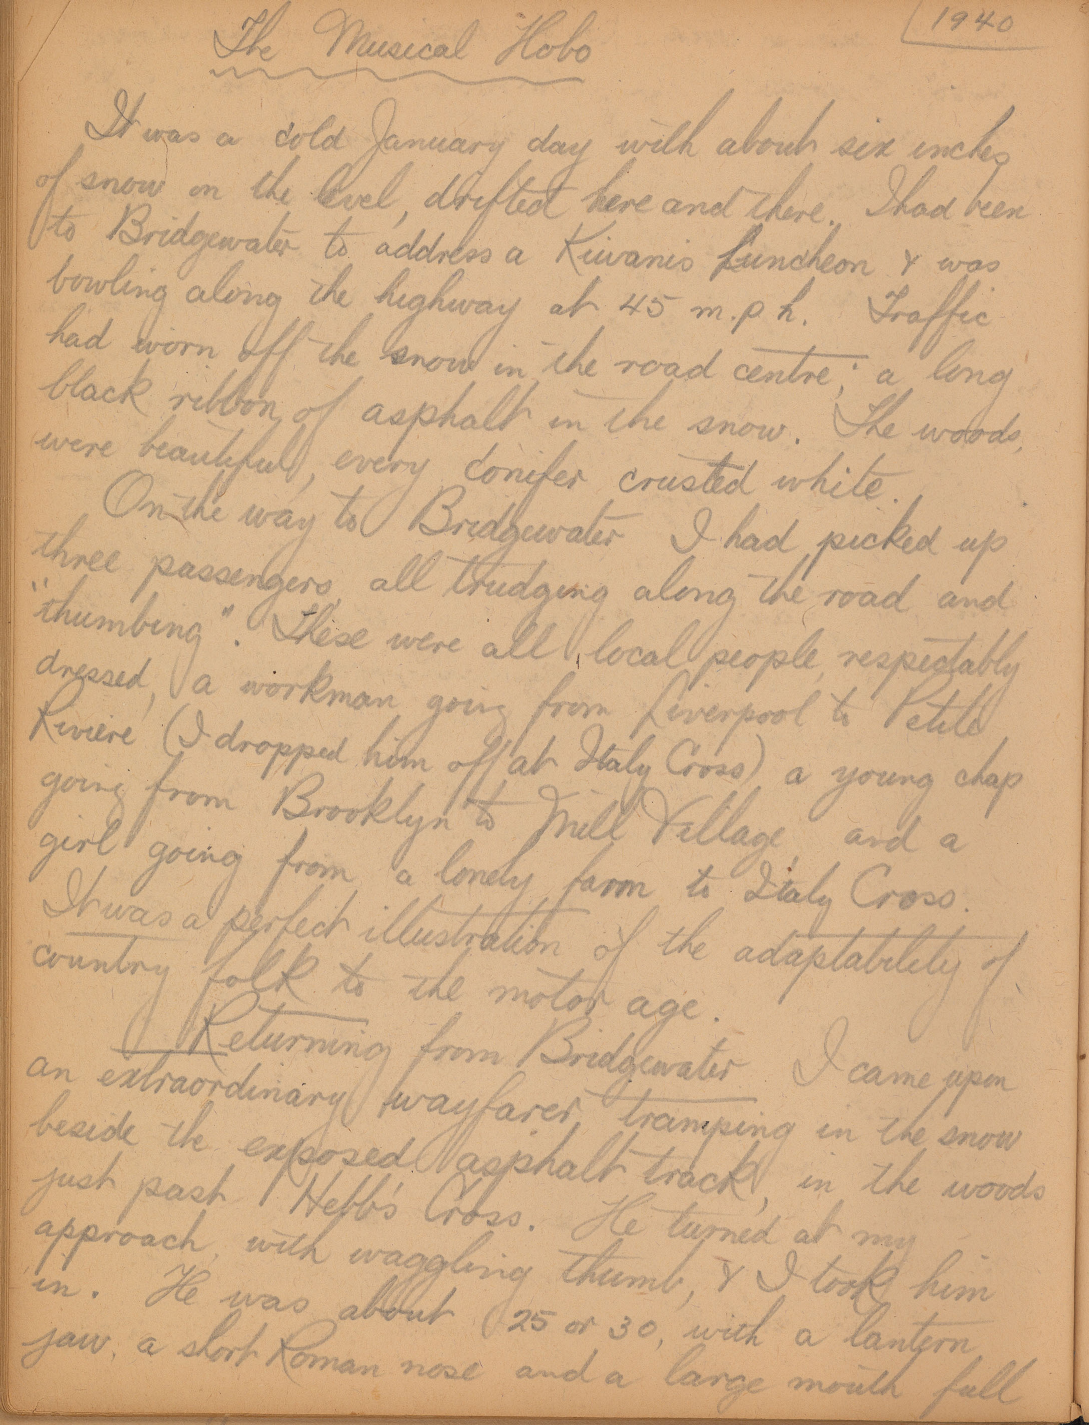 1940
The Musical Hobo
It was a cold January day with about six inches
of snow on the level, drifted here and there. I had been
to Bridgewater to address a Kiwanis Luncheon & was
bowling along the highway at 45 m.p.h. Traffic
had worn off the snow in the road centre; a long
black ribbon of asphalt in the snow. The woods
were beautiful, every conifer crusted white.
On the way to Bridgewater I had picked up
three passengers, all trudging along the road and
"thumbing". These were all local people, respectably
dressed, a workman going from Liverpool to Petite
Riviere (I dropped him off at Italy Cross) a young chap
going from Brooklyn to Mill Village, and a
girl going from a lonely farm to Italy Cross.
It was a perfect illustration of the adaptability of
country folk to the motor age.
Returning from Bridgewater I came upon
an extraordinary wayfarer, tramping in the snow
beside the exposed asphalt track, in the woods
just past Hebb's Cross. He turned at my
approach, with waggling thumb, & I took him
in. He was about 25 or 30, with a lantern
jaw, a short Roman nose and a large mouth full